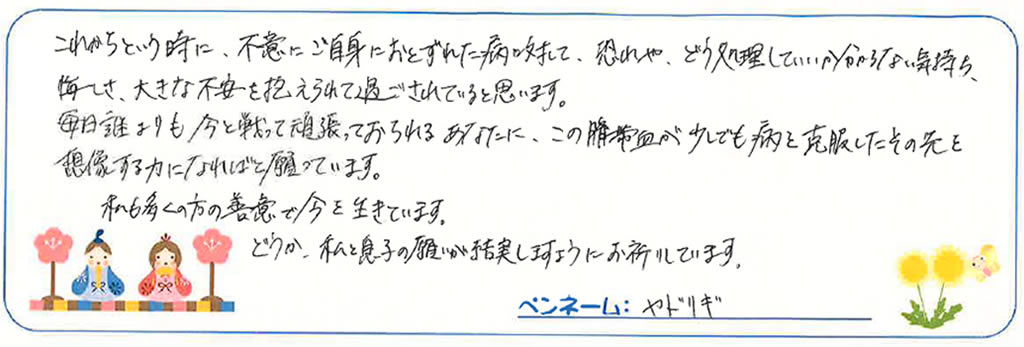 これからという時に、不意にご自身におとずれた病に対して、恐れや、どう処理していいか分からない気持ち、
悔しさ、大きな不安を抱えられて過ごされていると思います。
毎日誰よりも今と戦って頑張っておられるあなたに、この臍帯血が少しでも病を克服したその先を
想像する力になればと願っています。
私も多くの方の善意で今を生きています。
どうか、私と息子の願いが結実しますようにお祈りしています。
ペンネーム: ヤドリギ